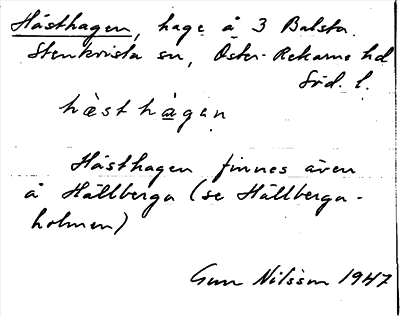 Hästhagen, hage å 3 Balsta.
Stenkvista sn, Öster-Rekarne hd
Söd. l.
hæsthàgen
Hästhagen finnes även
å Hällberga (se Hällberga-
holmen)
Gun Nilsson 1947